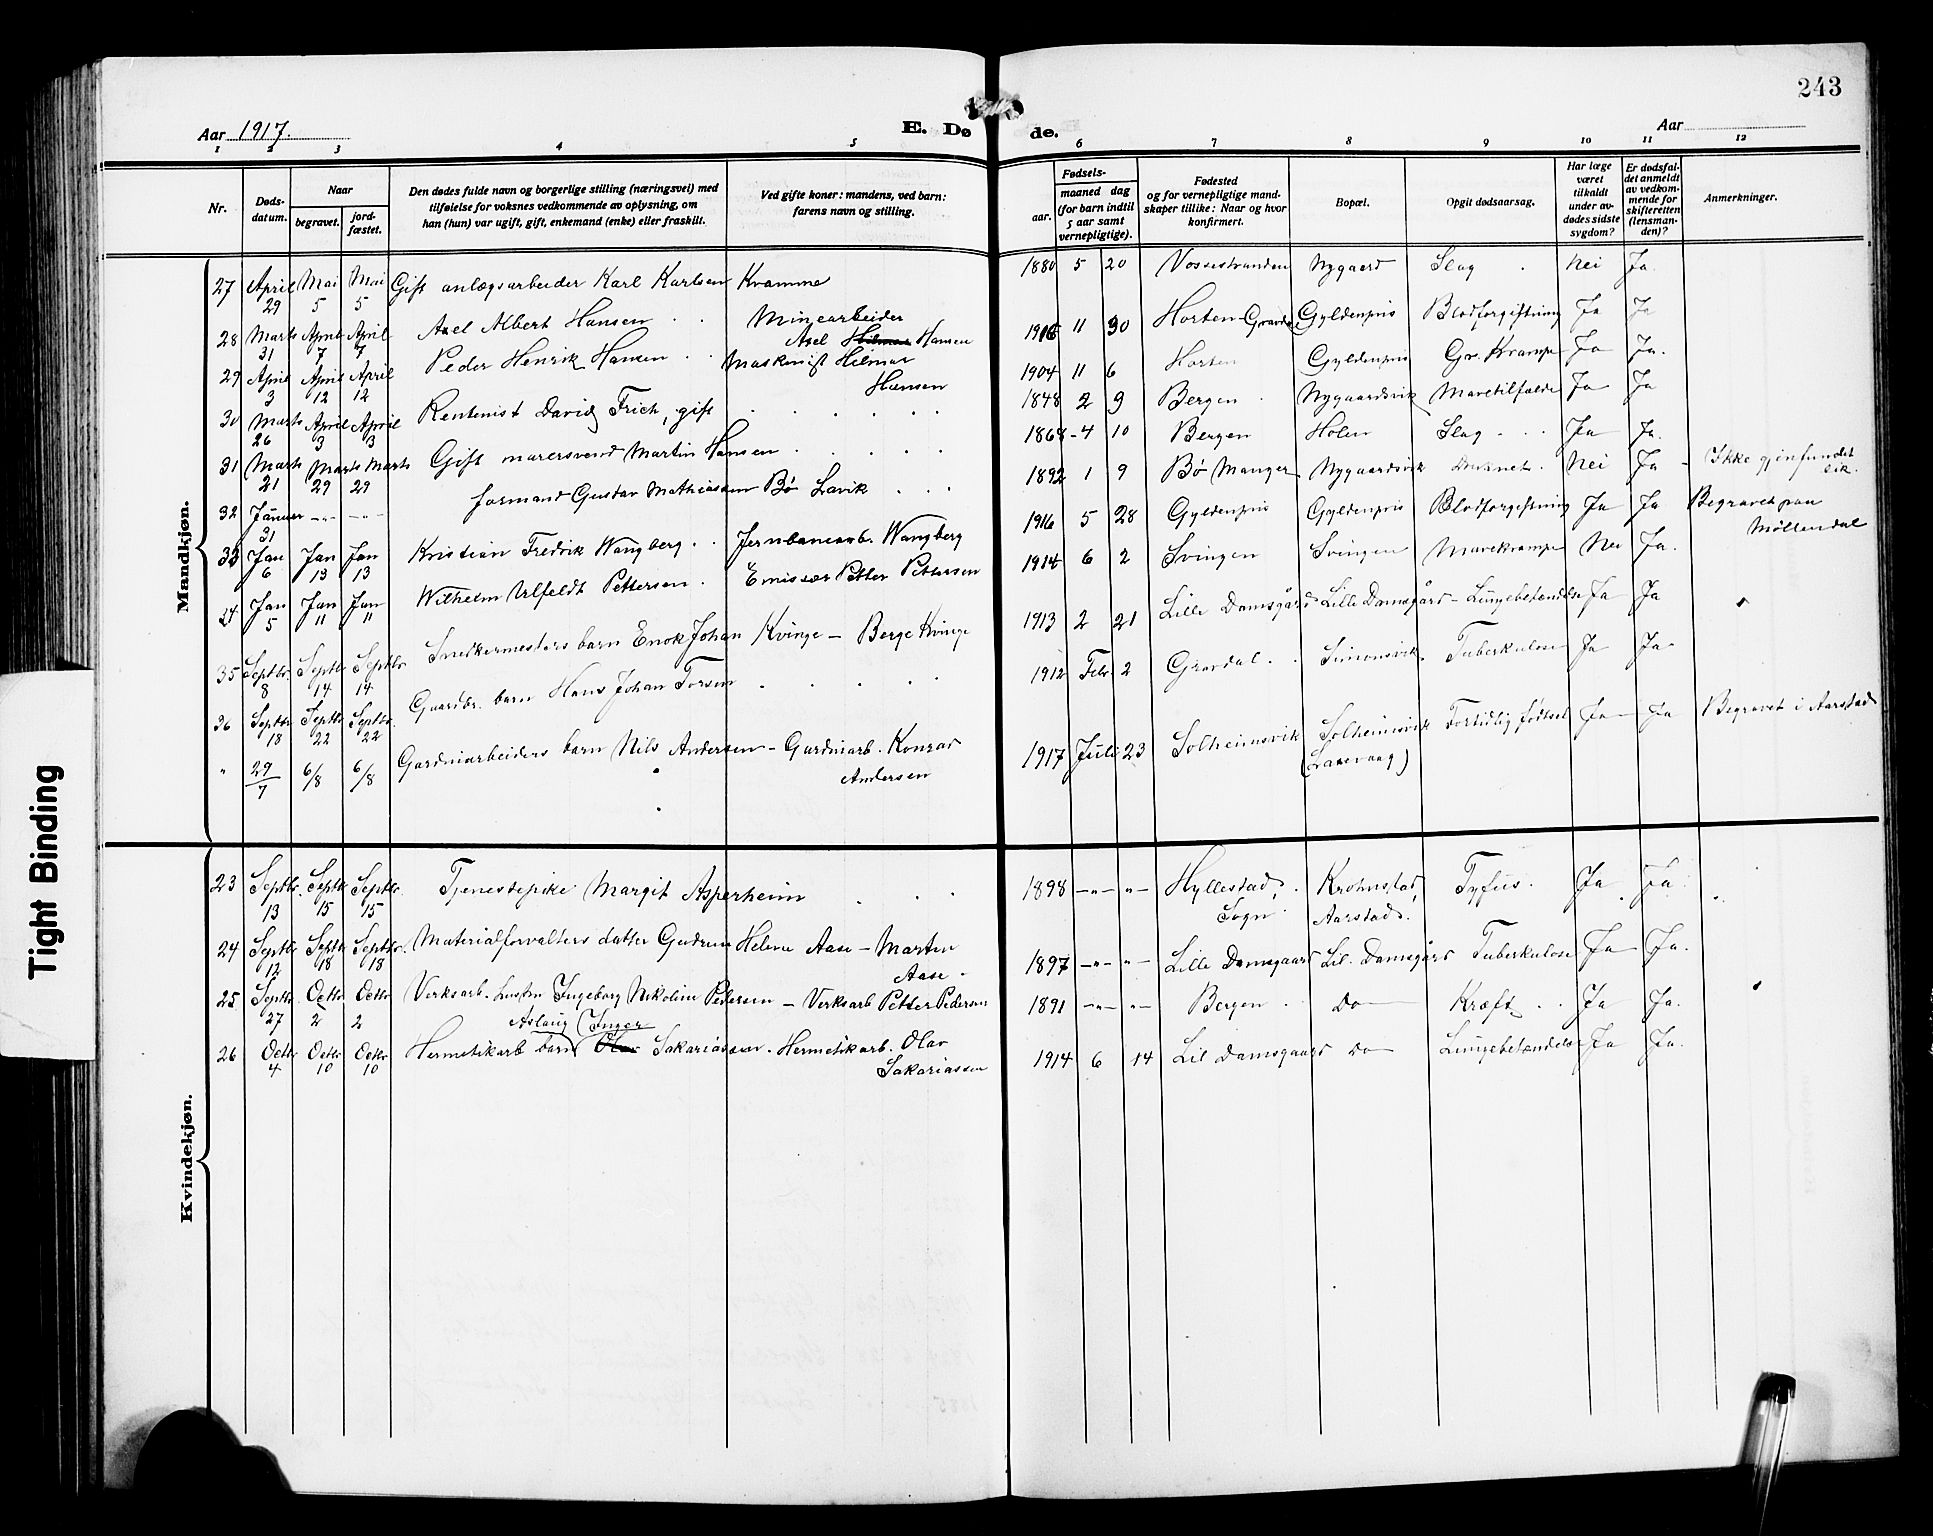 243
Aar 1917.
E. Dø de.
Aar
1 2 3 4 5 6 7 8 9 10 11 12
Nr.
Døds-
datum.
Naar
begravet.
jord-
fæstet.
Den dødes fulde navn og borgerlige stilling (næringsvei) med
tilføielse for voksnes vedkommende av oplysning, om
han (hun) var ugift, gift, enkemand (enke) eller fraskilt.
Ved gifte koner: mandens, ved barn:
farens navn og stilling.
Fødsels-
aar.
maaned dag
(for barn indtil
5 aar samt
vernepligtige).
Fødested
og for vernepligtige mand-
skaper tillike: Naar og hvor
konfirmert.
Bopæl.
Opgit dødsaarsag.
Har læge
været
tilkaldt
under av-
dødes sidste
sygdom?
Er dødsfal-
det anmeldt
av vedkom-
mende for
skifteretten
(lensman-
den)?
Anmerkninger.
Mandkjøn.
27 April 29 Mai 5 Mai 5 Gift anlægsarbeider Karl Karlsen Kvamme 1880 5 20 Vossestranden Nygaard Slag Nei Ja.
28 Marts 31 April 7 April 7 Axel Albert Hansen Minearbeider Axel Hilmar Hansen 1916 11 30 Horten Gyldenpris Blodforgiftning Ja Ja
29 April 3 April 12 April 12 Peder Henrik Hansen Maskenist Helmar Hansen 1904 11 6 Horten Gyldenpris Gr. Krampe Ja Ja.
30 Marts 26 April 3 April 3 Rentenist David Frich, gift 1848 2 9 Bergen Nygaardsvik Mavetilfælde Ja Ja
31 Marts 21 Marts 29 Marts 29 Gift murersvend Martin Hansen 1868 4 10 Bergen Holen Slag Ja Ja.
32 Januar 31 -"- -"- Formand Gustav Mathiassen Bø Lavik 1892 1 9 Bø Manger Nygaardsvik Druknet. Nei Ja Ikke gjenfundet lik.
33 Jan 6 Jan 13 Jan 13 Kristian Fredrik Wangberg Jernbanearb. Wangberg 1916 5 28 Gyldenpris Gyldenpris Blodforgiftning Ja Ja Begravet paa Møllendal
34 Jan 5 Jan 11 Jan 11 Wilhelm Ulfeldt Pettersen Emissær Petter Pettersen 1914 6 2 Svingen Svingen Mavekrampe Nei Ja.
35 Septbr. 8 Septb 14 Septbr 14 Snedkermesters barn Enok Johan Kvinge — Berge Kvinge 1913 2 21 Lille Damsgård Lille Damsgård Lungebetændelse Ja Ja
36 Septbr 18 Septbr 22 Septbr. 22 Gaardbr. barn Hans Johan Torsen 1912 Febr. 2 Gravdal Simonsvik Tuberkulose Ja Ja
" 29/7 6/8 6/8 Gardinarbeiders barn Nils Andersen — Gardinarb. Konrad Andersen 1917 Juli 23 Solheimsvik Solheimsvik (Laxevaag) Fortidlig fødsel Ja Ja Begravet i Aarstad
Kvindekjøn.
23 Septbr. 13 Septb 15 Septbr. 15 Tjenestepike Margit Asperheim 1898 -"- -"- Hyllestad, Sogn Krohnstad, Aarstad. Tyfus. Ja Ja.
24 Septbr 12 Septb 18 Septbr. 18 Materialforvalters datter Gudrun Helene Aase — Martin Aase 1897 -"- -"- Lille Damsgaard Lil. Damsgård Tuberkulose Ja Ja.
25 Septbr. 27 Octbr 2 Octbr 2 Verksarb. hustru Ingeborg Nikoline Pedersen — Verksarb Petter Pedersen 1891 -"- -"- Bergen Do Kræft Ja Ja.
Aslaug (Inger
26 Octbr 4 Octbr 10 Octbr 10 Hermetikarb barn Olav Sakariassen. Hermetikarb. Olav Sakariassen 1914 6 14 Lil Damsgaard Do Lungebetændelse Ja Ja.
Tight Binding